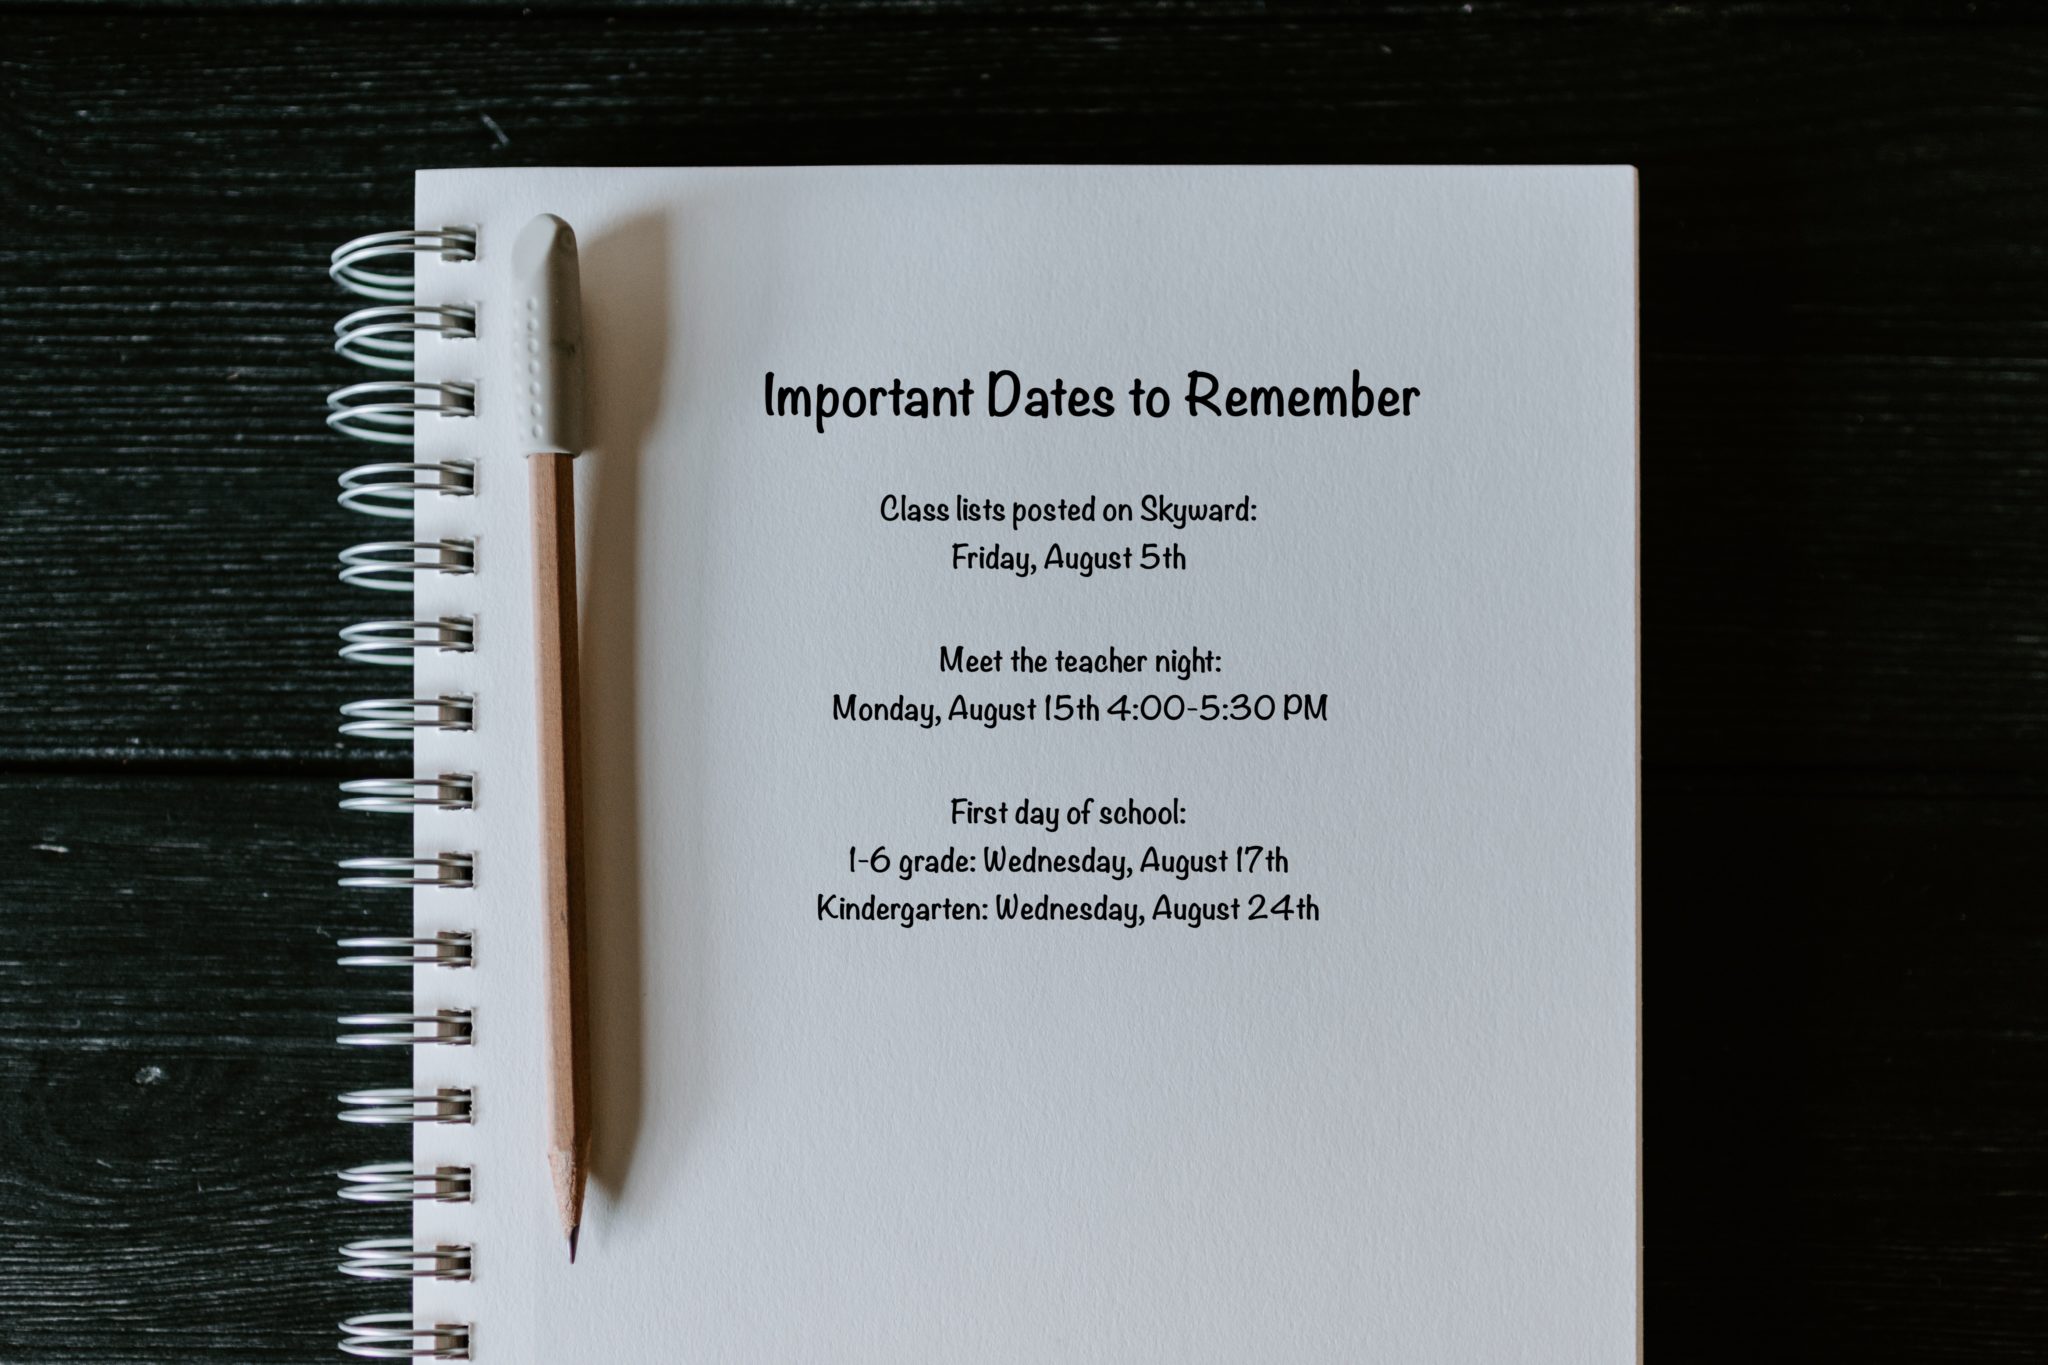 Important Dates to Remember
Class lists posted on Skyward:
Friday, August 5th
Meet the teacher night:
Monday, August 15th 4:00-5:30 PM
First day of school:
1-6 grade: Wednesday, August 17th
Kindergarten: Wednesday, August 24th